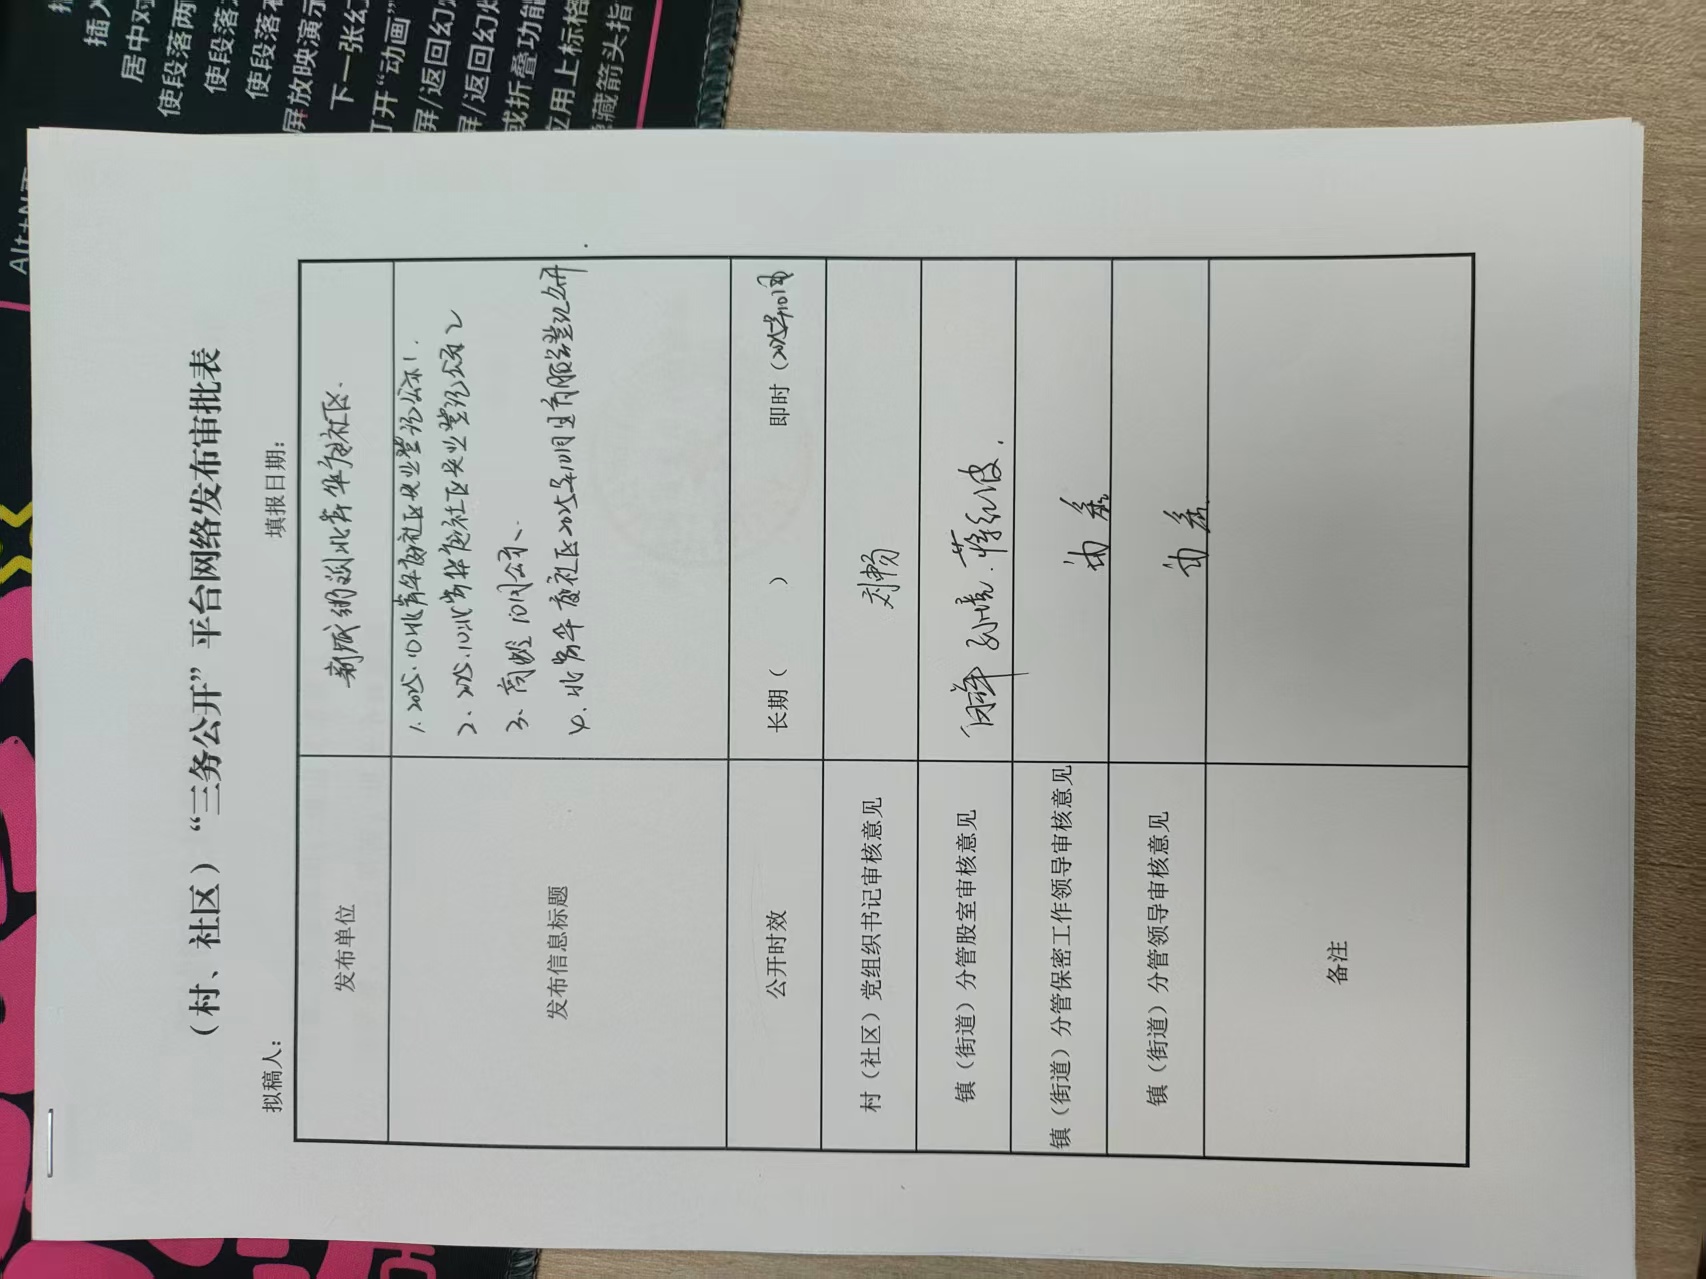 （村、社区）“三务公开”平台网络发布审批表
拟稿人： 填报日期：
发布单位 新城街道北岸华府社区.
发布信息标题
1. 2025.10北岸华府社区失业登记公示1.
2. 2025.10北岸华府社区失业登记公示2
3. 高龄10月公示、
4. 北岸华府社区2025年10月
公开时效 长期（ ） 即时（2025年10月
村（社区）党组织书记审核意见 刘畅
镇（街道）分管股室审核意见
镇（街道）分管保密工作领导审核意见
镇（街道）分管领导审核意见
备注
插入
居中对
使段落两
使段落
使段落
屏放映演示
下一张幻
打开“动画”
屏/返回幻
屏/返回幻
或折叠功能
应用上标格
藏箭头指